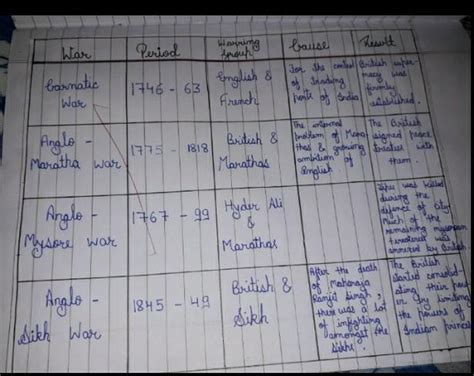 War
Period
Warring
group
Cause
Result
Carnatic
War
1746 - 63
English &
French
For the control
of trading
ports of India
British supre
macy was
firmly
established.
Anglo -
Maratha War
1775 - 1818
British &
Marathas
The internal
problem of Mara
thas & growing
ambition of
English.
The British
signed peace
treaties with
them.
Anglo -
Mysore War
1767 - 99
Hyder Ali
&
Marathas
was killed
during the
defence of city
Much of the
remaining mysorean
was
annexed by British
Anglo -
Sikh War
1845 - 49
British &
Sikh
After the death
of Maharaja
Ranjit Singh,
there was a lot
of infighting
amongst the
Sikhs.
The British
started consolid-
ating their pow
er by limiting
the powers of
Indian princes